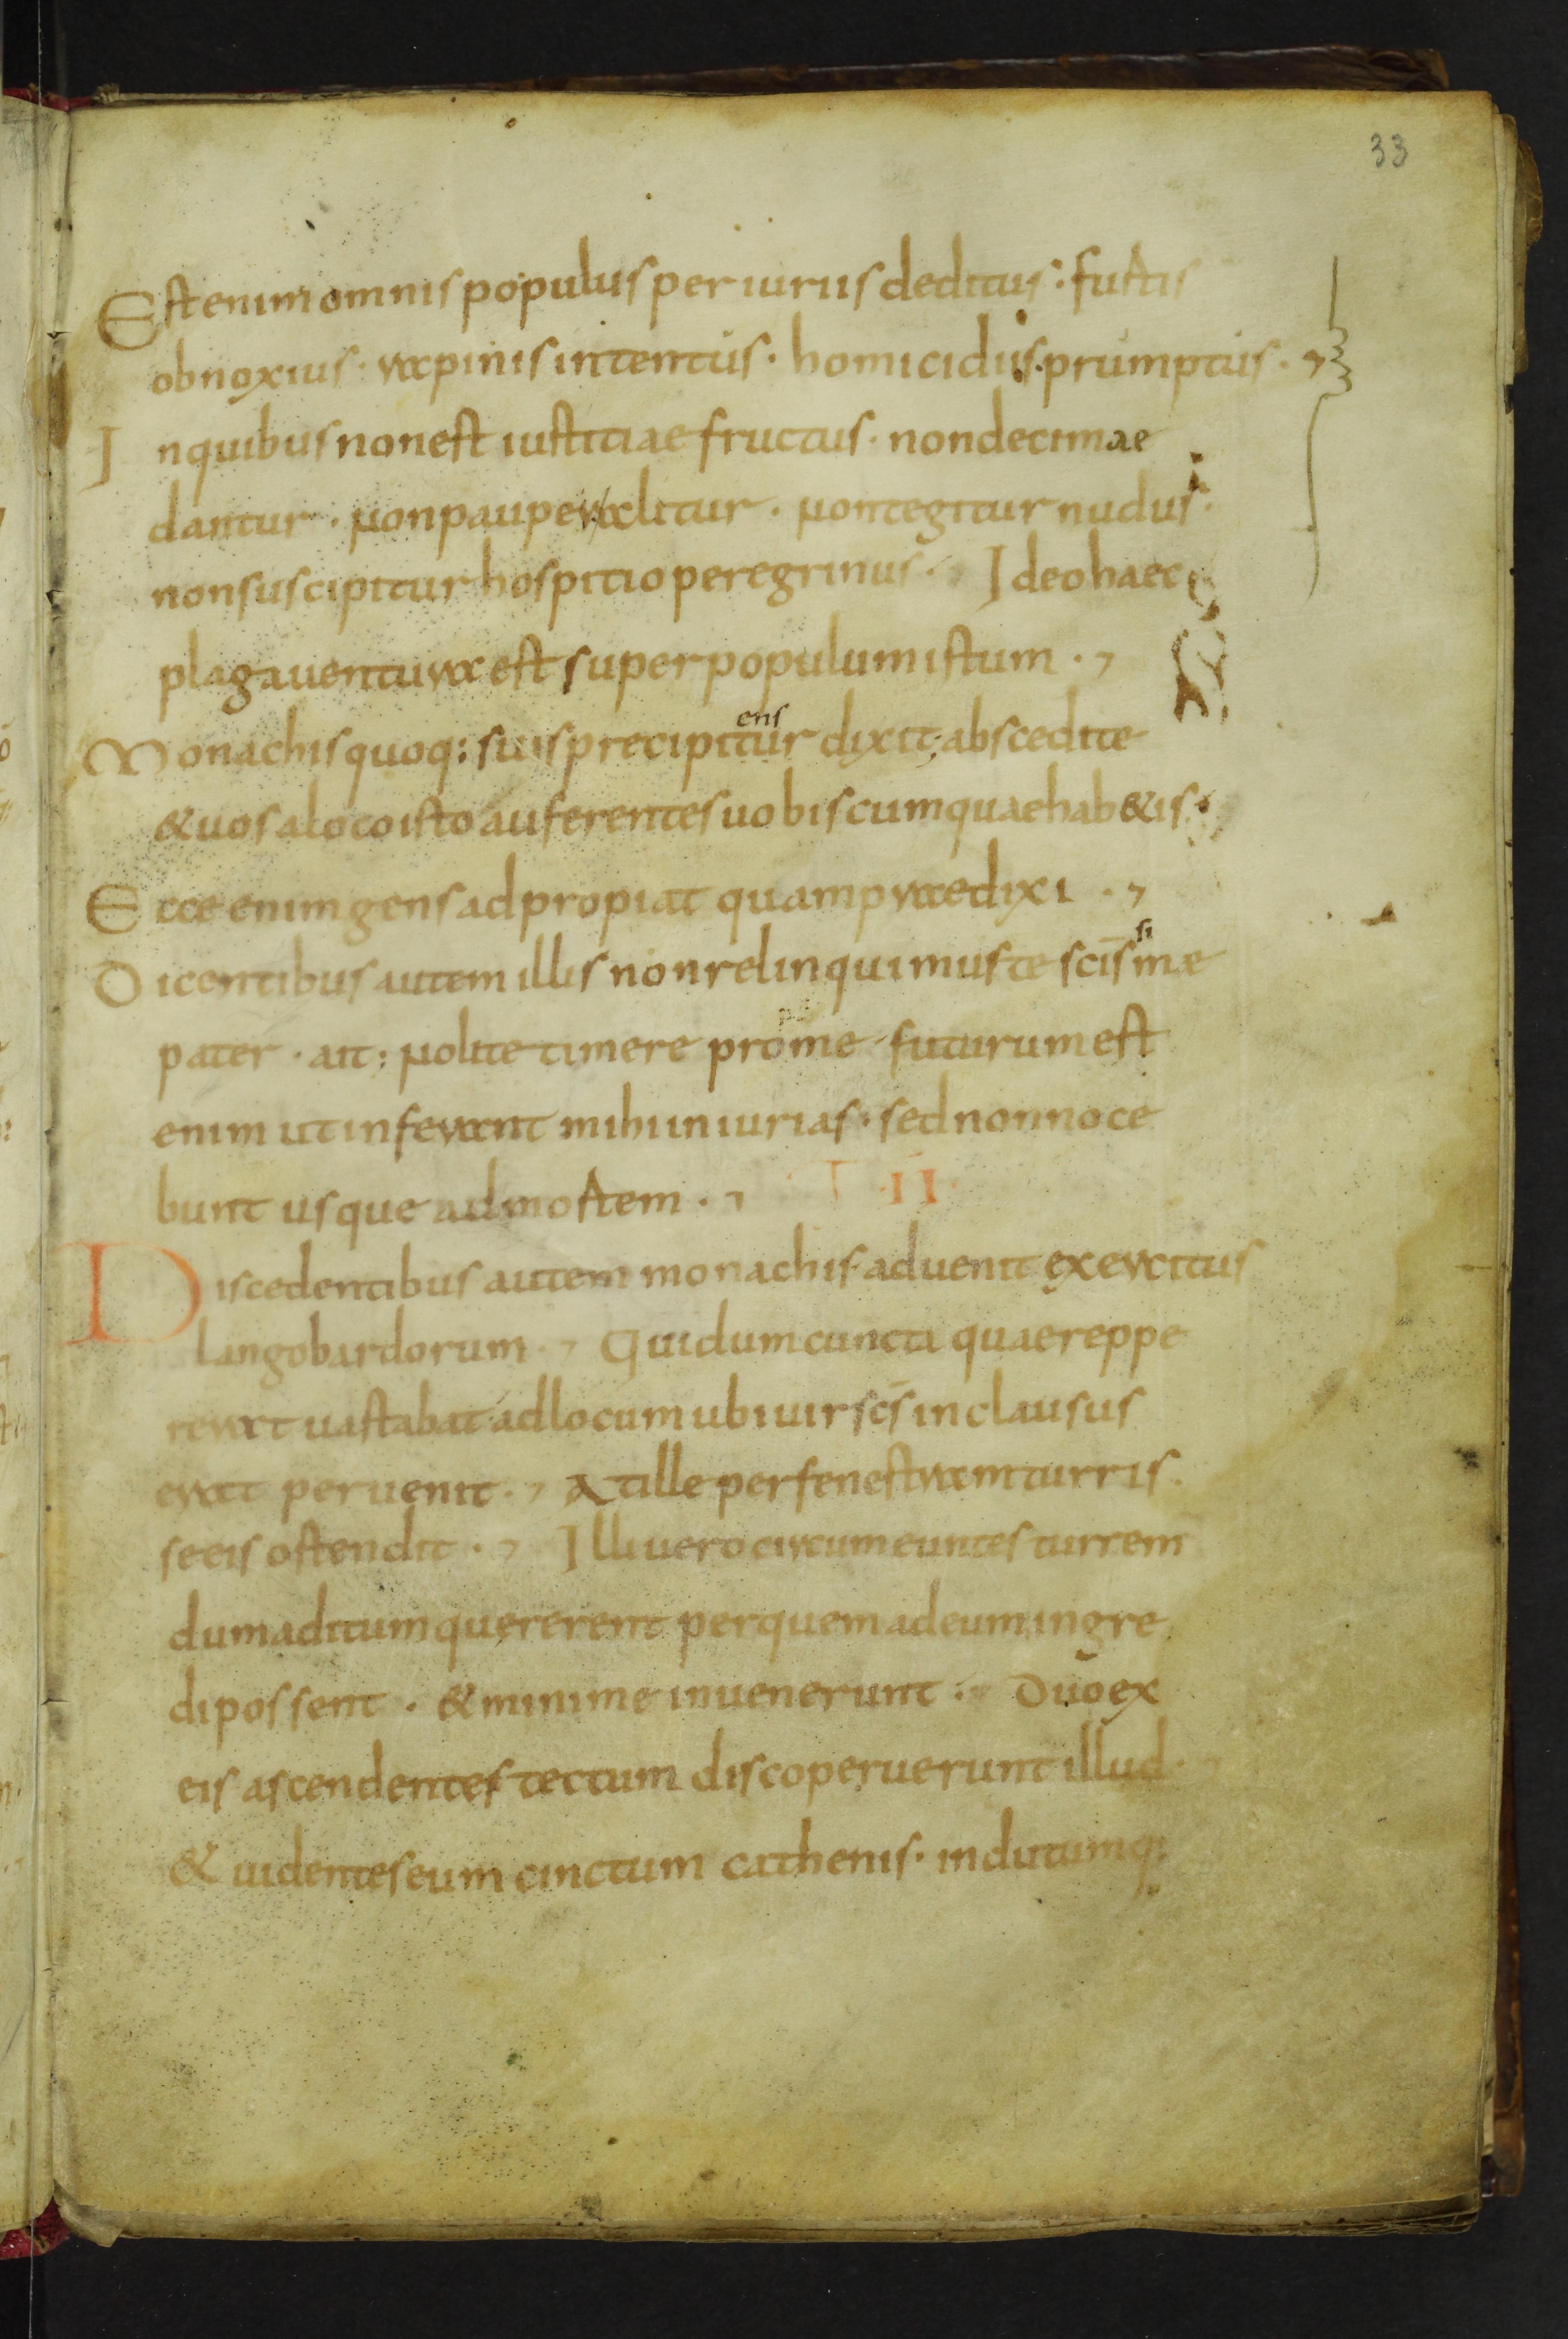 33
Est enim omnis populus periuriis deditus : fustis
obnoxius · rapinis intentus · homicidiis · prumptus ·
In quibus non est iustitiae fructus · non decimae
dantur · non pauper alitur · non tegitur nudus ·
non suscipitur hospitio peregrinus · Ideo haec
plaga uentura est super populum istum ·
Monachis quoq: suis precipitur ens dixit; abscedite
& uos a loco isto auferentes uobiscum quae hab&is ·
Ecce enim gens adpropiat quam praedixi ·
Dicentibus autem illis non relinquimus te scīs si me
pater · ait : nolite timere pro me · futurum est
enim ut inferant mihi iniurias · sed non noce
bunt usque ad mortem · II ·
Discedentibus autem monachis · aduenit exercitus
langobardorum · Qui dum cuncta quae reppe
rerat uastabat · ad locum ubi uir scs̄ inclausus
erat peruenit · At ille per fenestram turris ·
se eis ostendit · Illi uero circumeuntes turrem
dum aditum quererent per quem ad eum ingre
di possent · & minime inuenerunt · Duo ex
eis ascendentes tectum discoperuerunt illud ·
& uidentes eum cinctum cathenis · indutumq: